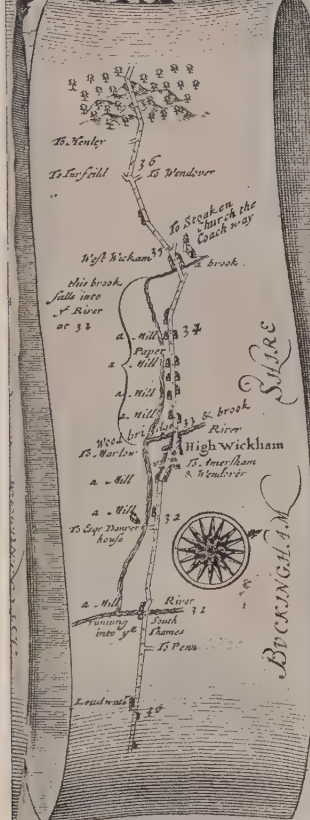 To Henley
36
To Turfeild
To Wendover
To Stoaken
Church the
Coach way
West Wickam
35
a brook
this brook
falls into
ye River
at 32
a Mill
34
Paper
a Mill
a Mill
a Mill
33 & brook
Wood bri
River
To Marlow
High Wickham
To Amersham
& Wendever
a Mill
a Mill
32
To Esqr
house
a Mill
River
31
running
into ye
South
Thames
To Penn
Loudwater
30
BUCKINGHAM
SHIRE